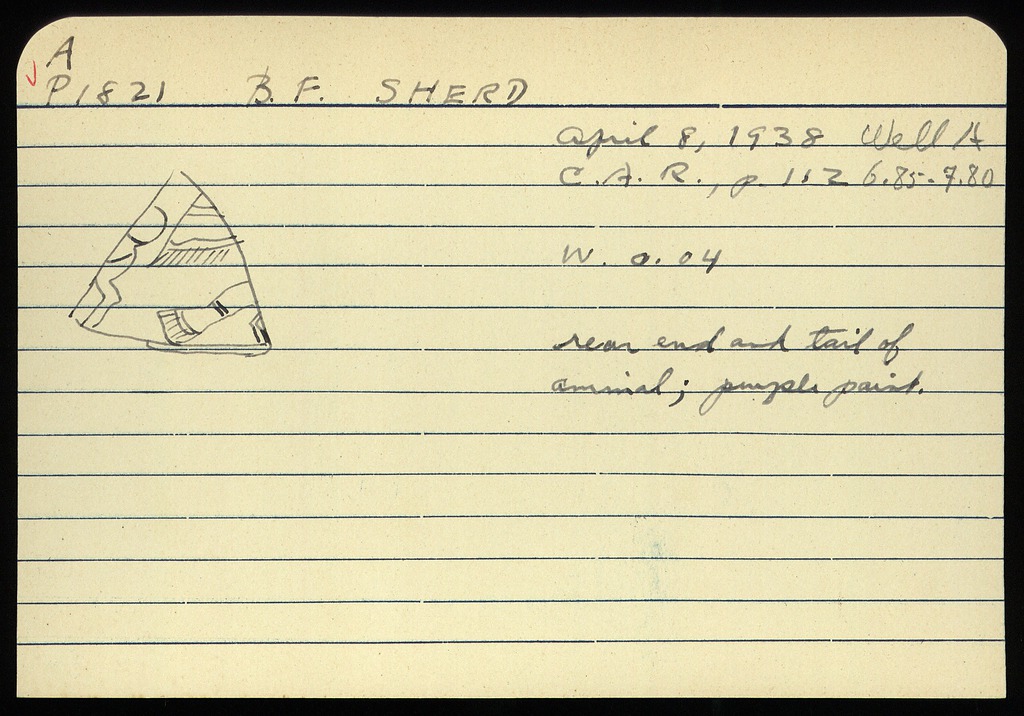 A
P1821 B.F. SHERD
April 8, 1938 Well A
C.A.R., p. 112 6.85-7.80
W. 0.04
rear end and tail of
animal; purple paint.